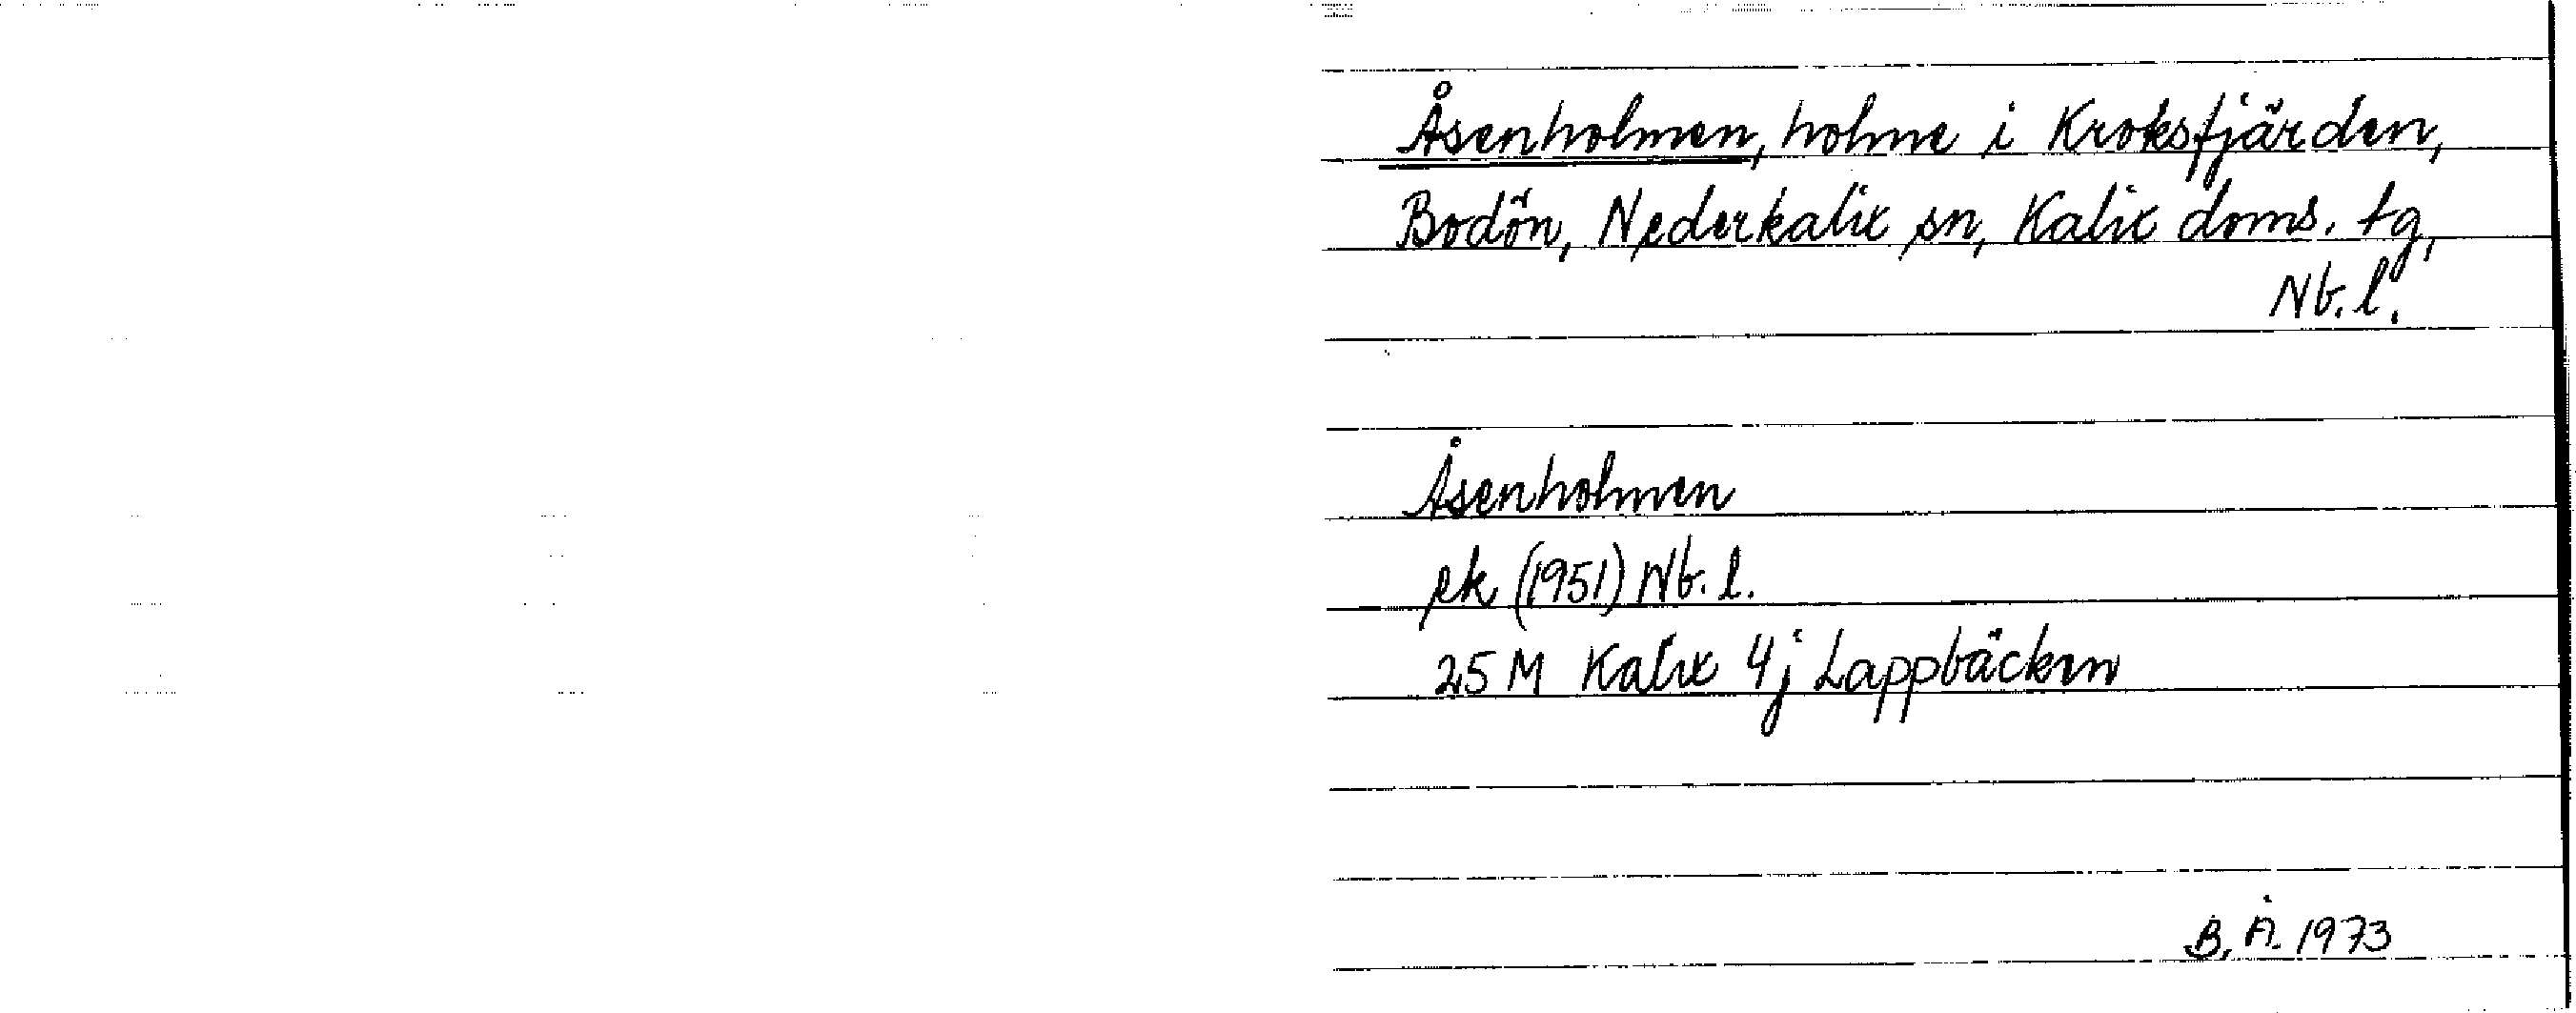 Åsenholmen, holme i Kroksfjärden,
Bodön, Nederkalix sn, Kalix doms. tg,
Nb. l.
Åsenholmen
ek (1951) Nb. l.
25 M Kalix 4j Lappbäcken
B. Å. 1973